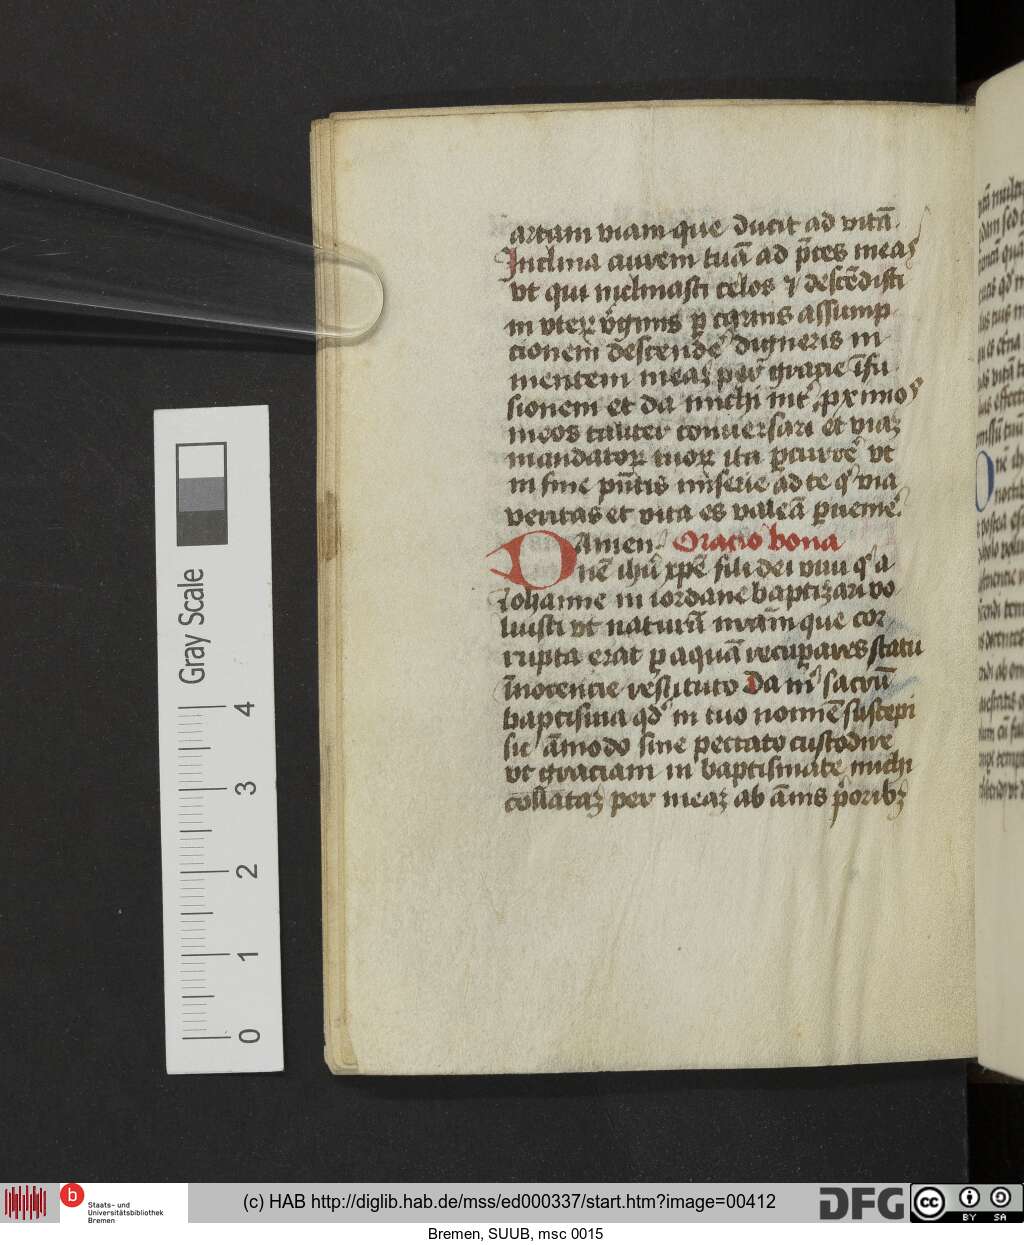 artam viam que ducit ad vitā
Inclina aurem tuā ad p̄ces meas
vt qui inclinasti celos ⁊ descēdisti
in vteꝝ v̾gīnis ꝑ carnis assump
cionem descende᷑ digneris in
mentem meaꝫ per gracie īfu
sionem et da michi int᷑ ꝓximos
meos taliter conuersari et viaꝫ
mandatoꝝ tuoꝝ ita ꝑcurre᷑ vt
in fine pn̄tis miserie ad te qͥ via
veritas et vita es valeā ꝑuenire᷑
Amen. Oracio bona
Dn̄e ihū xp̄e fili dei viui qͥ a
Iohanne in iordane baptizari vo
luisti vt naturā nr̄am que cor
rupta erat ꝑ aquā recuꝑares statu
īnocencie restituto Da mͥ sacrū
baptisma qd᷑ in tuo nomīe suscepi
sic āmodo sine peccato custodire
vt graciam in baptismate michi
collataꝫ per meaꝫ ab ānis pͥoribꝫ
Gray Scale
4
3
2
1
0
b Staats- und
Universitätsbibliothek
Bremen
(c) HAB http://diglib.hab.de/mss/ed000337/start.htm?image=00412
DFG
cc BY SA
Bremen, SUUB, msc 0015